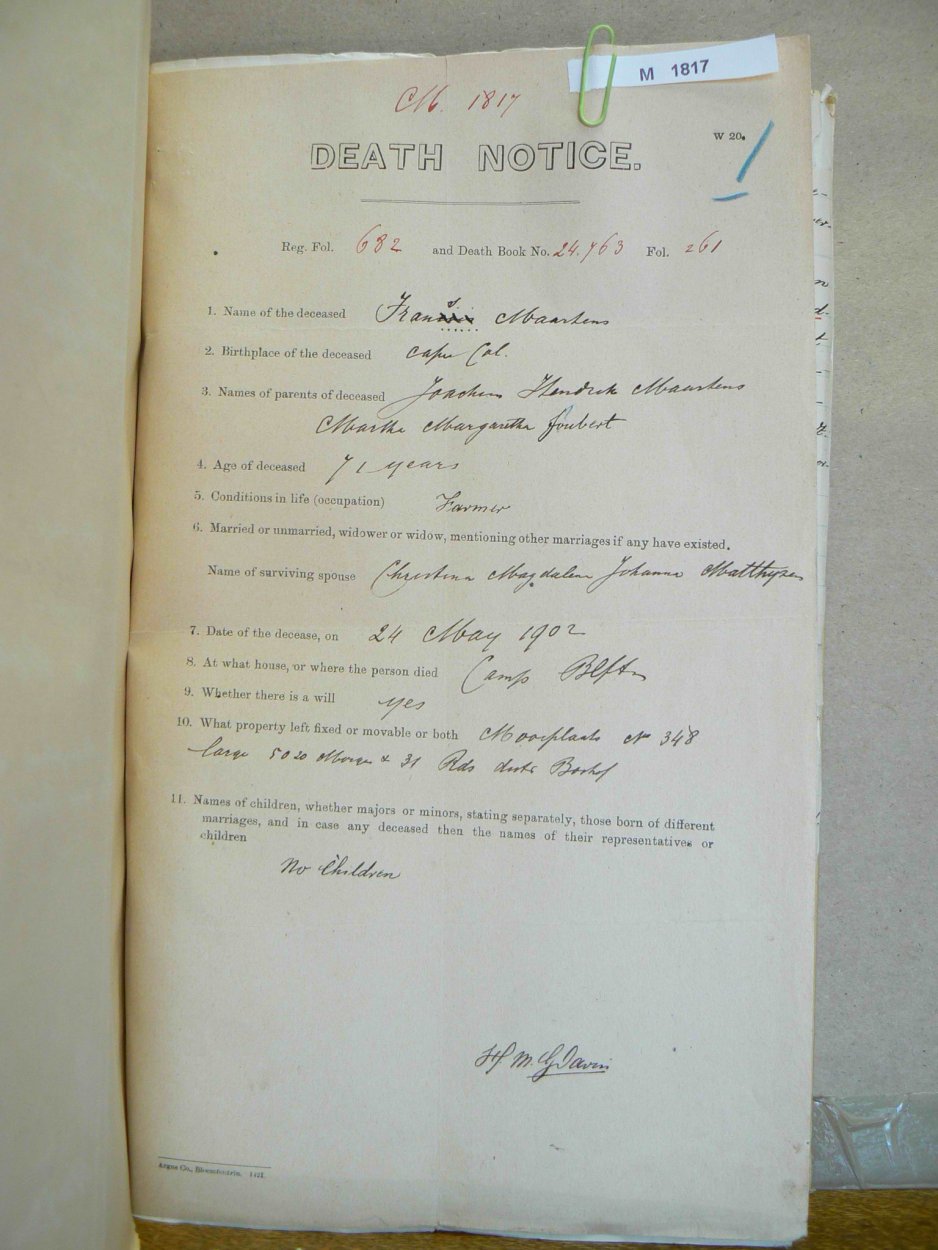 M 1817
M. 1817
W 20.
1
DEATH NOTICE.
Reg. Fol. 682 and Death Book No. 24.763 Fol. 261
1. Name of the deceased Frans Maartens
2. Birthplace of the deceased Cape Col.
3. Names of parents of deceased Joachim Hendrik Maartens
Martha Margaretha Joubert
4. Age of deceased 71 years
5. Conditions in life (occupation) Farmer
6. Married or unmarried, widower or widow, mentioning other marriages if any have existed.
Name of surviving spouse Christina Magdalena Johanna Matthysen
7. Date of the decease, on 24 May 1902
8. At what house, or where the person died Camp Blftn
9. Whether there is a will yes
10. What property left fixed or movable or both Mooiplaats No 348
large 5020 Morgen & 31 Rds distr Boshof
11. Names of children, whether majors or minors, stating separately, those born of different
marriages, and in case any deceased then the names of their representatives or
children
No Children
Argus Co., Bloemfontein. 1421.